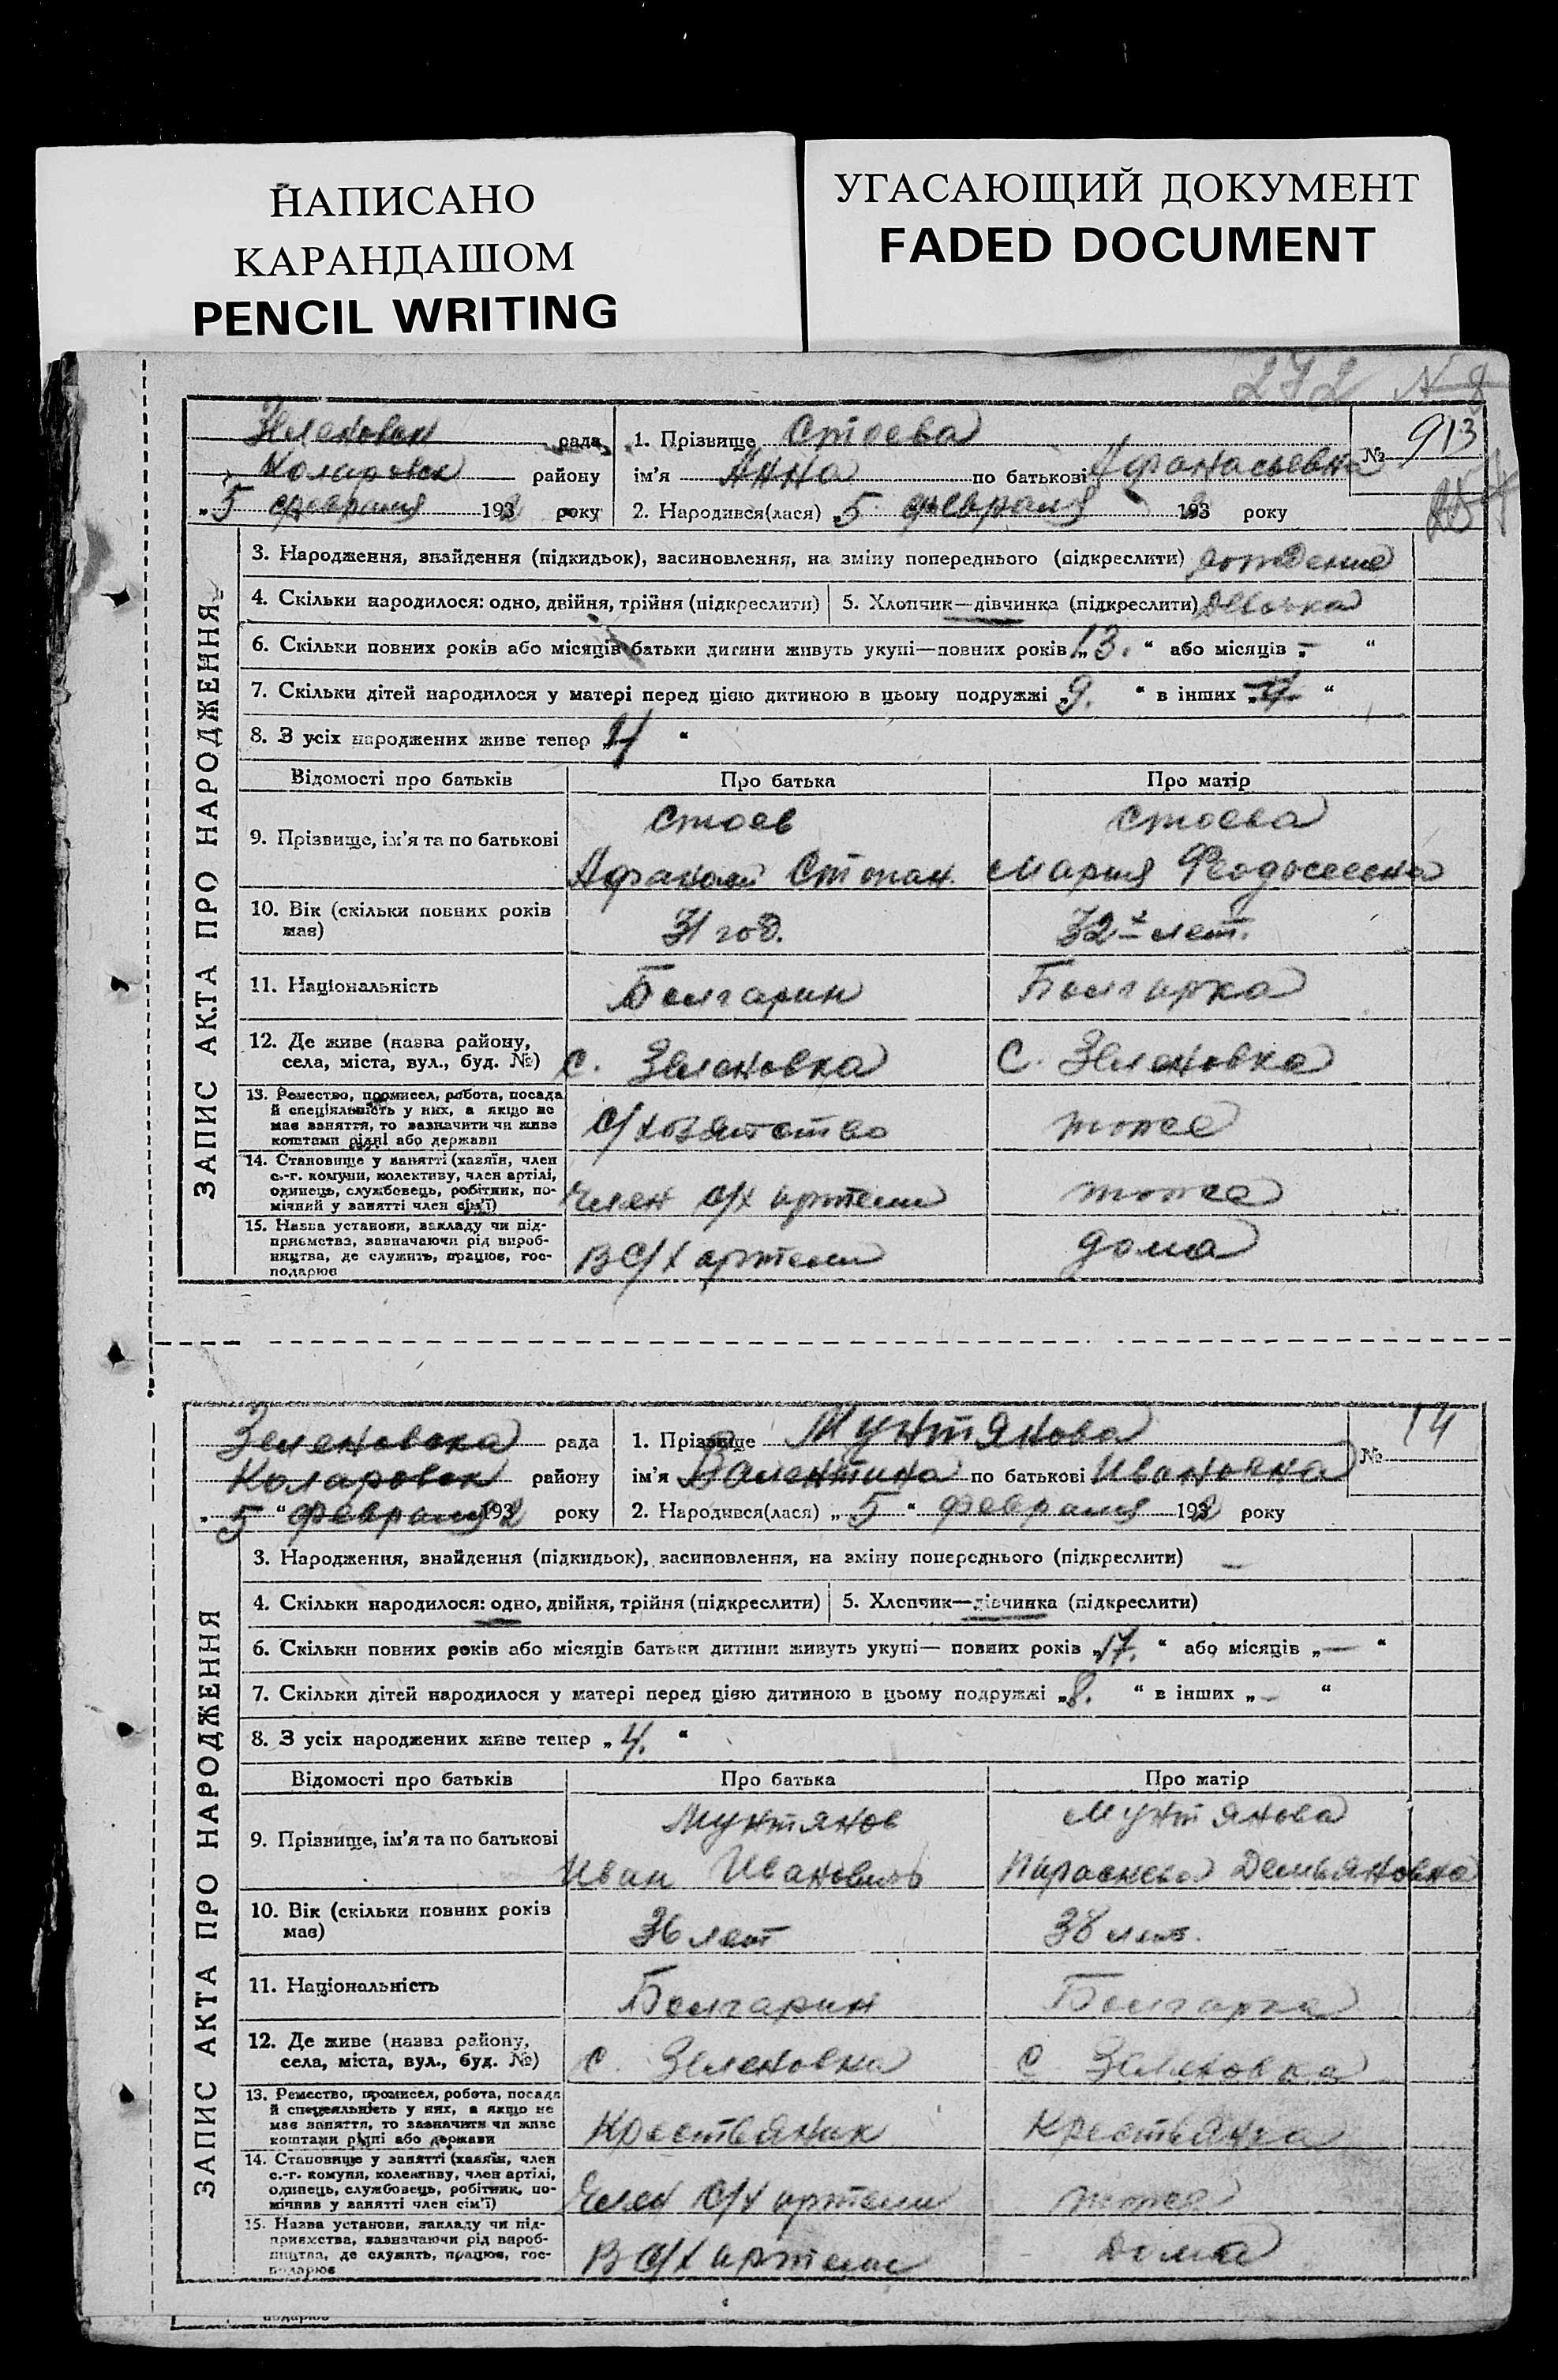 НАПИСАНО
КАРАНДАШОМ
PENCIL WRITING
УГАСАЮЩИЙ ДОКУМЕНТ
FADED DOCUMENT
272 N 8
Зеленовск рада
Коларовск району
„5 февраля 1932 року
1. Прізвище Стоева
ім'я Анна по батькові Афанасьевна
2. Народився(лася) „5 февраля 1932 року
№ 913
ЗАПИС АКТА ПРО НАРОДЖЕННЯ
3. Народження, знайдення (підкидьок), засиновлення, на зміну попереднього (підкреслити) рождение
4. Скільки народилося: одно, двійня, трійня (підкреслити) 5. Хлопчик—дівчинка (підкреслити) Девочка
6. Скільки повних років або місяців батьки дитини живуть укупі—повних років „13. “ або місяців „- “
7. Скільки дітей народилося у матері перед цією дитиною в цьому подружжі „9. “ в інших „ “
8. З усіх народжених живе тепер „4 “
Відомості про батьків Про батька Про матір
9. Прізвище, ім'я та по батькові
Стоев Стоева
Афанасий Степан. Мария Феодосеевна
10. Вік (скільки повних років має)
31 год. 32 лет.
11. Національність Болгарин Болгарка
12. Де живе (назва району, села, міста, вул., буд. №)
с. Зеленовка С. Зеленовка
13. Ремество, промисел, робота, посада
й спеціяльність у них, а якщо не
має заняття, то зазначити чи живе
коштами рідні або держави
С/хозяйство тоже
14. Становище у занятті (хазяїн, член
с.-г. комуни, колективу, член артілі,
одинець, службовець, робітник, по-
мічний у занятті член сім'ї)
Член с/х артели тоже
15. Назва установи, закладу чи під-
приємства, зазначаючи рід вироб-
ництва, де служить, працює, гос-
подарює
В С/х артели дома
Зеленовска рада
Коларовск району
„5 “ февраля 1932 року
1. Прізвище Мунтянова
ім'я Валентина по батькові Ивановна
2. Народився(лася) „5 “ февраля 1932 року
№ 14
ЗАПИС АКТА ПРО НАРОДЖЕННЯ
3. Народження, знайдення (підкидьок), засиновлення, на зміну попереднього (підкреслити) —
4. Скільки народилося: одно, двійня, трійня (підкреслити) 5. Хлопчик—дівчинка (підкреслити)
6. Скільки повних років або місяців батьки дитини живуть укупі— повних років „17. “ або місяців „— “
7. Скільки дітей народилося у матері перед цією дитиною в цьому подружжі „8. “ в інших „- “
8. З усіх народжених живе тепер „4. “
Відомості про батьків Про батька Про матір
9. Прізвище, ім'я та по батькові
Мунтянов Мунтянова
Иван Иванович Параскева Демьяновна
10. Вік (скільки повних років має)
36 лет 38 лет.
11. Національність Болгарин Болгарка
12. Де живе (назва району, села, міста, вул., буд. №)
с. Зеленовка с Зеленовка
13. Ремество, промисел, робота, посада
й спеціяльність у них, а якщо не
має заняття, то зазначити чи живе
коштами рідні або держави
Крестьянин Крестьянка
14. Становище у занятті (хазяїн, член
с.-г. комуни, колективу, член артілі,
одинець, службовець, робітник, по-
мічник у занятті член сім'ї)
Член С/х артели тоже
15. Назва установи, закладу чи під-
приємства, зазначаючи рід вироб-
ництва, де служить, працює, гос-
подарює
В С/х артели Дома
подарює